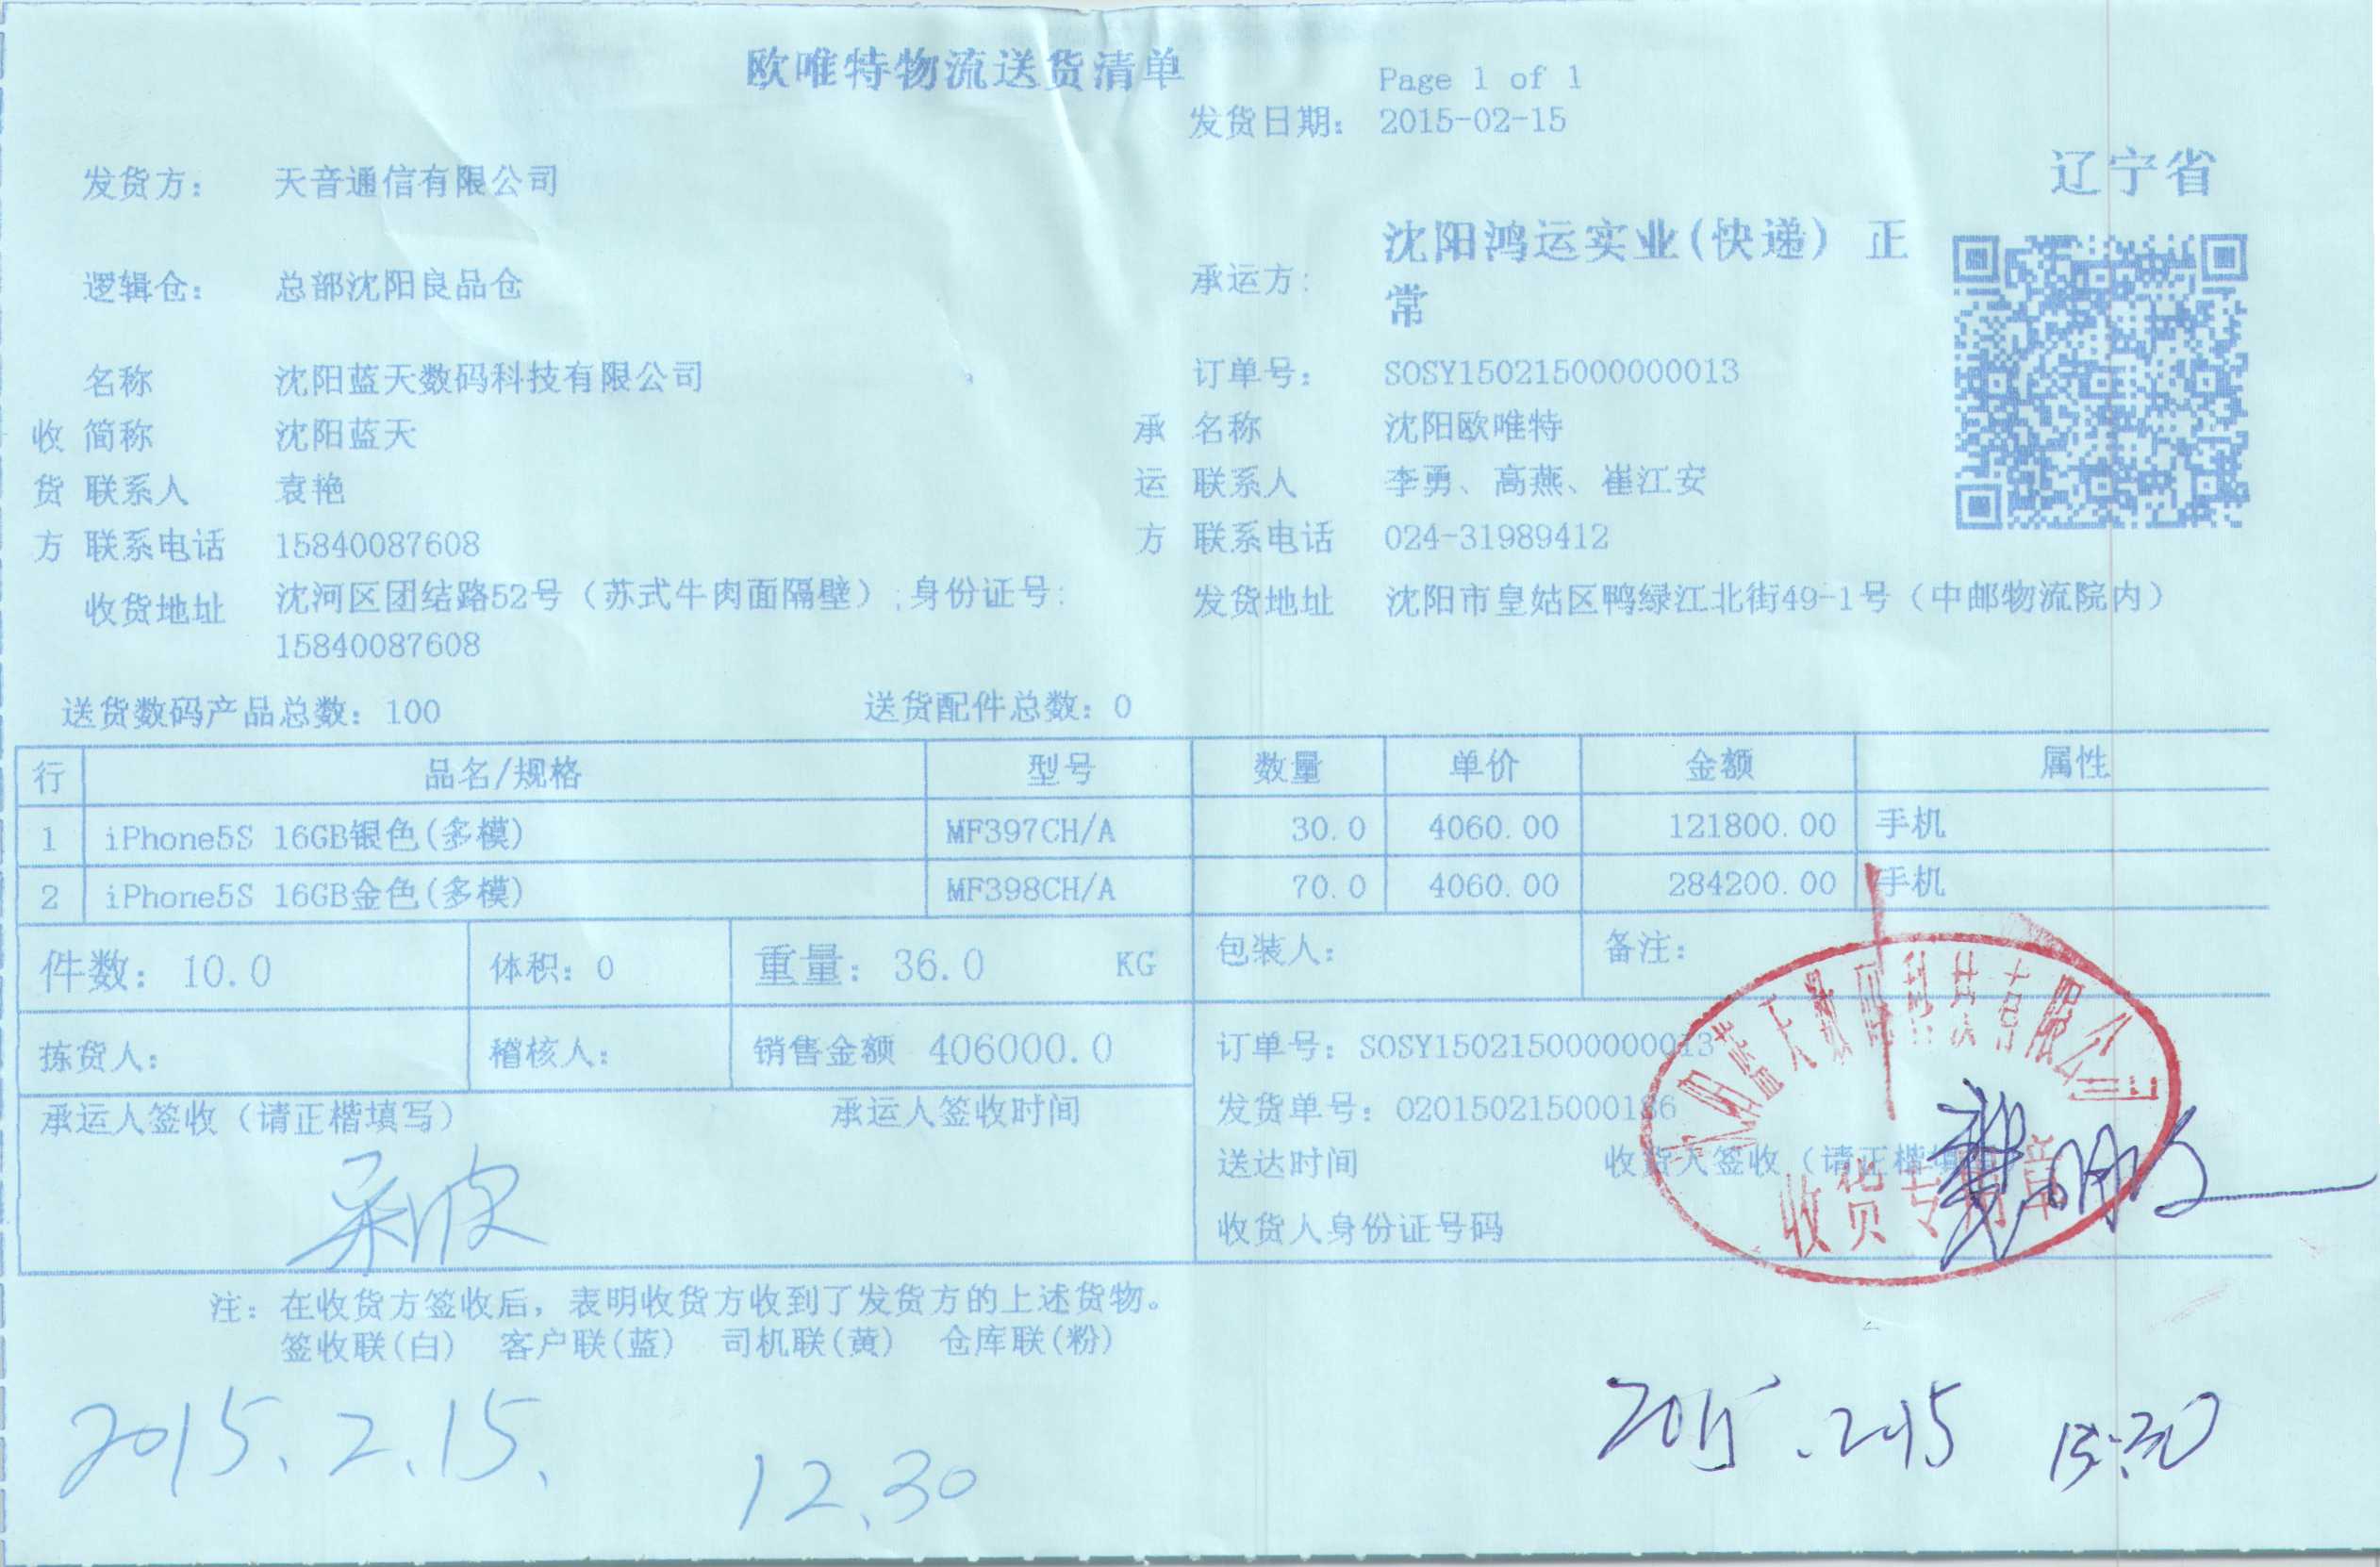 欧唯特物流送货清单
Page 1 of 1
发货日期: 2015-02-15
辽宁省
发货方: 天音通信有限公司
逻辑仓: 总部沈阳良品仓
承运方: 沈阳鸿运实业(快递) 正
常
名称 沈阳蓝天数码科技有限公司
订单号: SOSY150215000000013
收 简称 沈阳蓝天
承 名称 沈阳欧唯特
货 联系人 袁艳
运 联系人 李勇、高燕、崔江安
方 联系电话 15840087608
方 联系电话 024-31989412
收货地址 沈河区团结路52号（苏式牛肉面隔壁）;身份证号:
15840087608
发货地址 沈阳市皇姑区鸭绿江北街49-1号（中邮物流院内）
送货数码产品总数: 100 送货配件总数: 0
行 品名/规格 型号 数量 单价 金额 属性
1 iPhone5S 16GB银色(多模) MF397CH/A 30.0 4060.00 121800.00 手机
2 iPhone5S 16GB金色(多模) MF398CH/A 70.0 4060.00 284200.00 手机
件数: 10.0 体积: 0 重量: 36.0 KG 包装人: 备注:
拣货人: 稽核人: 销售金额 406000.0
订单号: SOSY150215000000013
承运人签收（请正楷填写） 承运人签收时间
发货单号: 020150215000186
送达时间 收货人签收（请正楷填
收货人身份证号码
阳蓝天数码科技有限公司
收货专用章
注: 在收货方签收后, 表明收货方收到了发货方的上述货物。
签收联(白) 客户联(蓝) 司机联(黄) 仓库联(粉)
2015.2.15.
12.30
2015.2.15